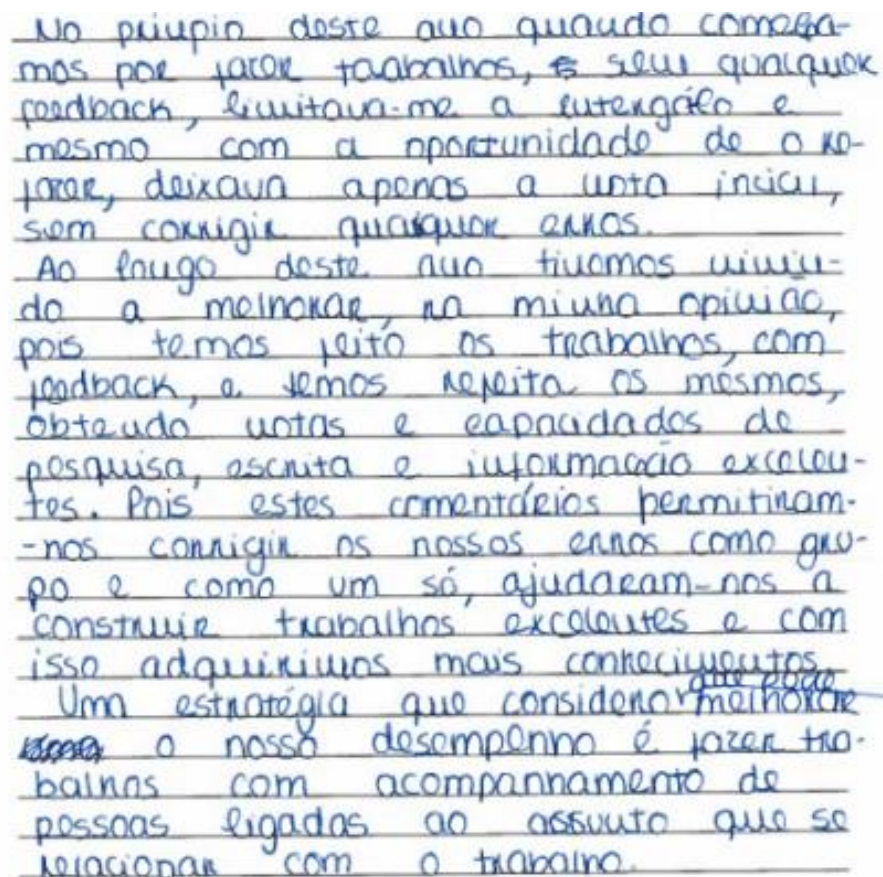 No príncipio deste ano quando começa-
mos por fazer trabalhos, sem qualquer
feedback, limitava-me a entregá-lo e
mesmo com a oportunidade de o re-
fazer, deixava apenas a nota incial,
sem corrigir quaisquer erros.
Ao longo deste ano tivemos
do a melhorar, na minha opinião,
pois temos feito os trabalhos, com
feedback, e temos refeito os mesmos,
obtendo notas e capacidades de
pesquisa, escrita e informação excelen-
tes. Pois estes comentários permitiram-
-nos corrigir os nossos erros como gru-
po e como um só, ajudaram-nos a
construir trabalhos excelentes e com
isso adquirimos mais conhecimentos.
Uma estratégia que considero que pode melhorar
o nosso desempenho é fazer tra-
balhos com acompanhamento de
pessoas ligadas ao assunto que se
relacionar com o trabalho.